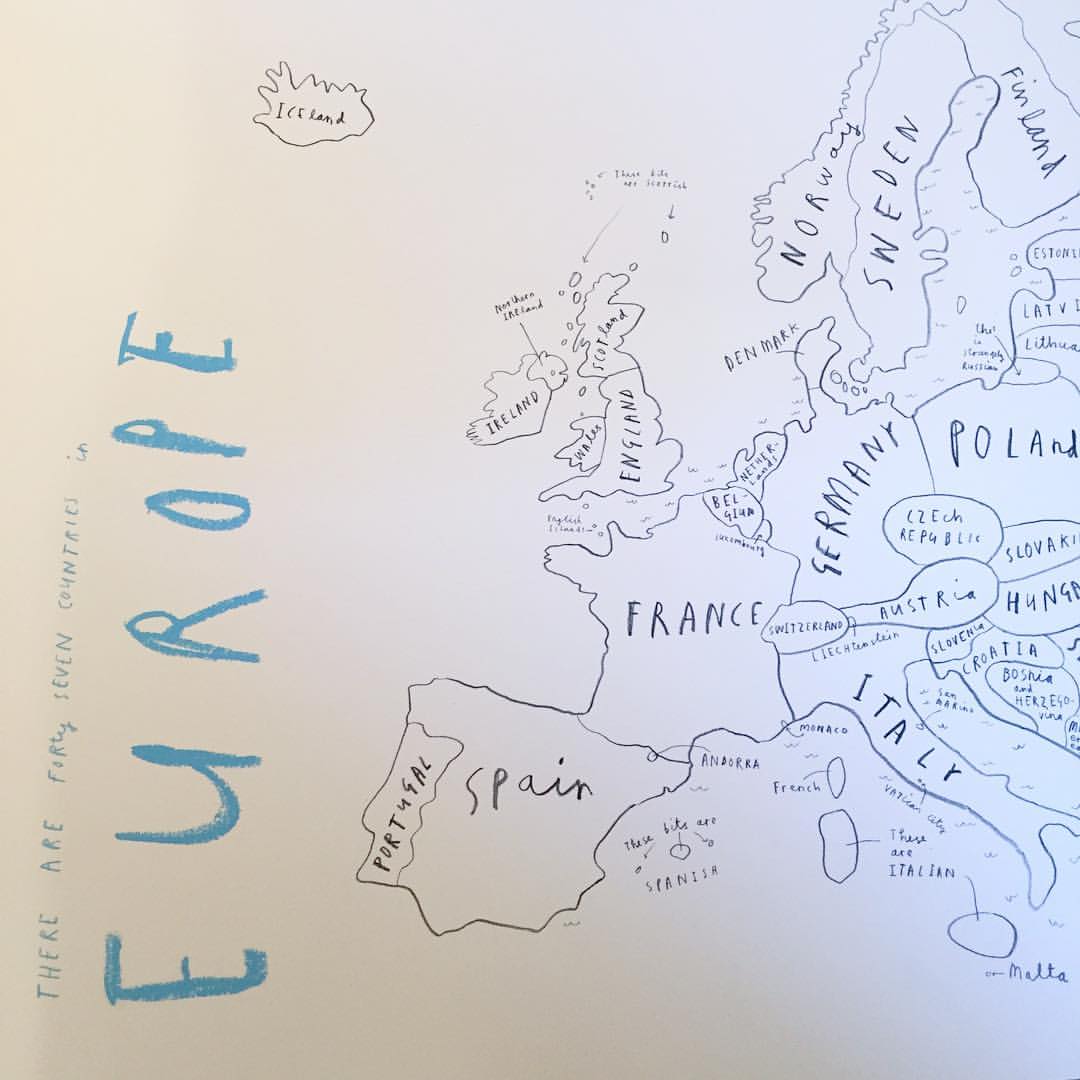 THERE ARE FORTY SEVEN COUNTRIES in
EUROPE
ICEland
These bits
are Scottish
Northern
IRELAND
SCOTland
IRELAND
WALES
ENGLAND
English
Islands
NORWAY
SWEDEN
Finland
ESTONI
LATVI
Lithua
this
is
strangely
RUSSIAN
DENMARK
POLAnd
GERMANY
NETHER-
Lands
BEL-
GIUM
Luxembourg
CZECh
REPUBLIC
SLOVAKI
FRANCE
SWITZERLAND
AUSTRia
HUNGA
LIECHtenstein
SLOVENIA
CROATIA
BOSnia
and
HERZEGO-
vina
San
MARino
ITALY
MONACO
ANDORRA
French
VATICAN CITY
PORTUGAL
Spain
These bits are
SPANISH
These
are
ITALIAN
Malta